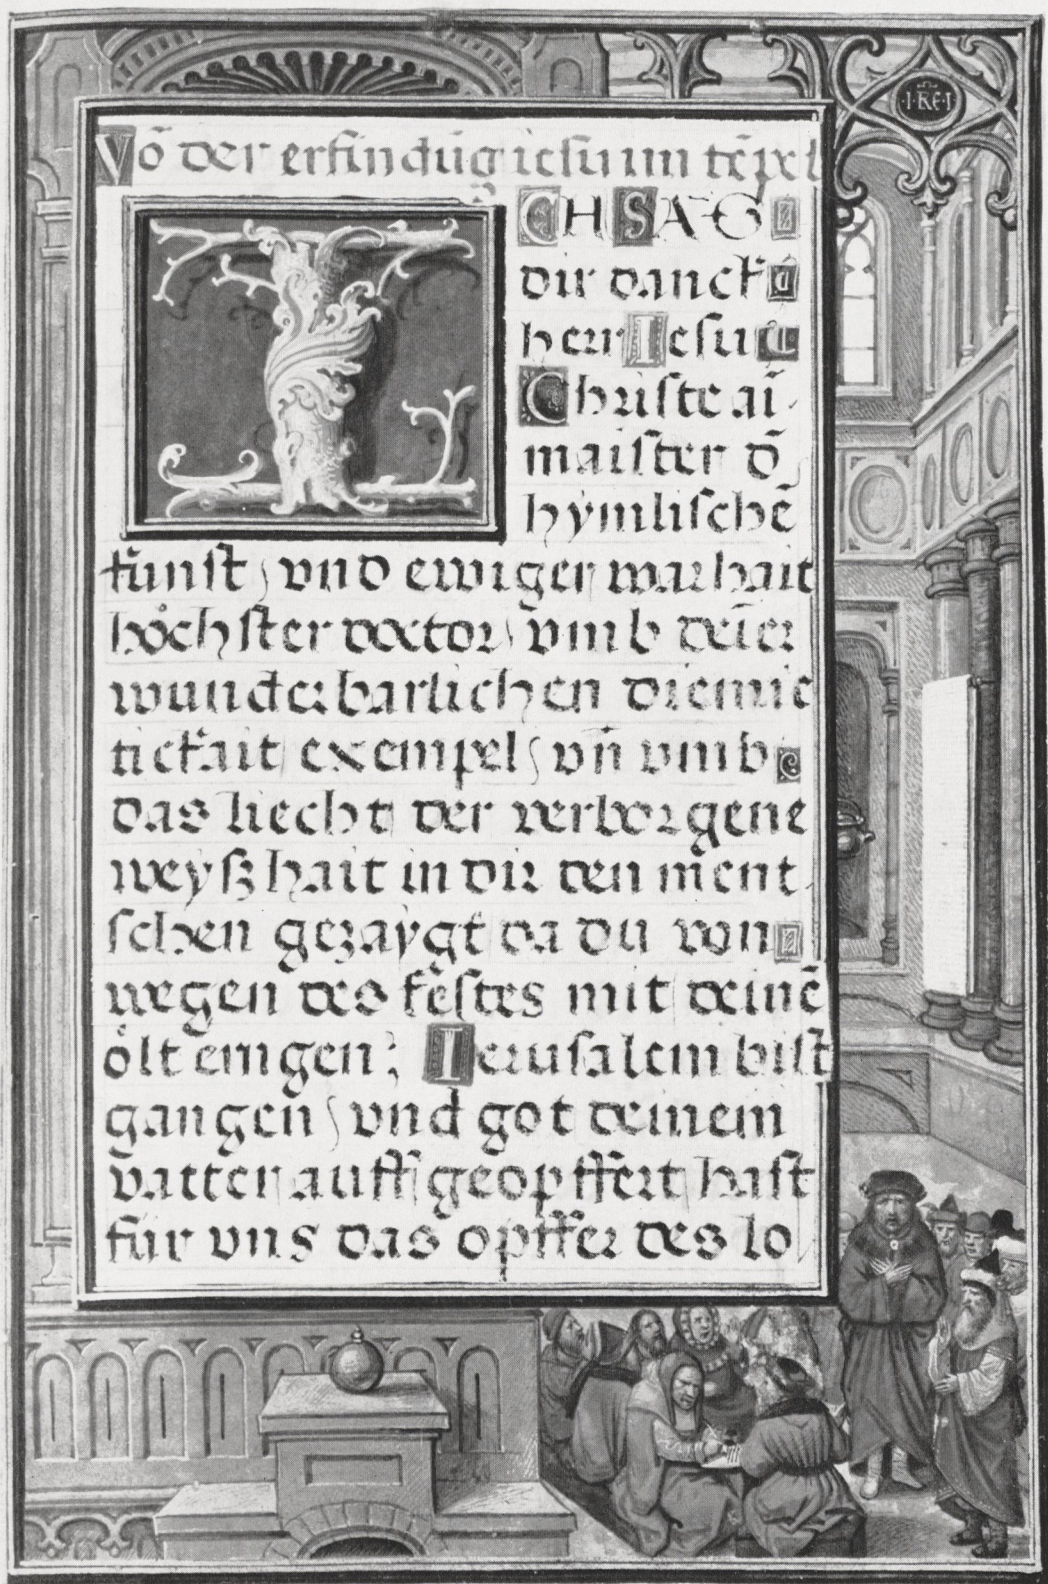 Vō der erfindūg iesu im tēpel
I
CH SAG
dir danckh
herr Iesu
Christe ai
maister d̄
hymlischē
kunst, vnd ewiger warhait
höchster doctor, vmb deīer
wunderbarlichen diemie
tickait exempel, vn̄ vmb
das liecht der verborgene
weyßhait in dir den ment
schen gezaygt da du von
wegen des festes mit deinē
ölt emgen; Ierusalem bist
gangen, vnd got deinem
vatter auff geopffert hast
für vns das opffer des lo